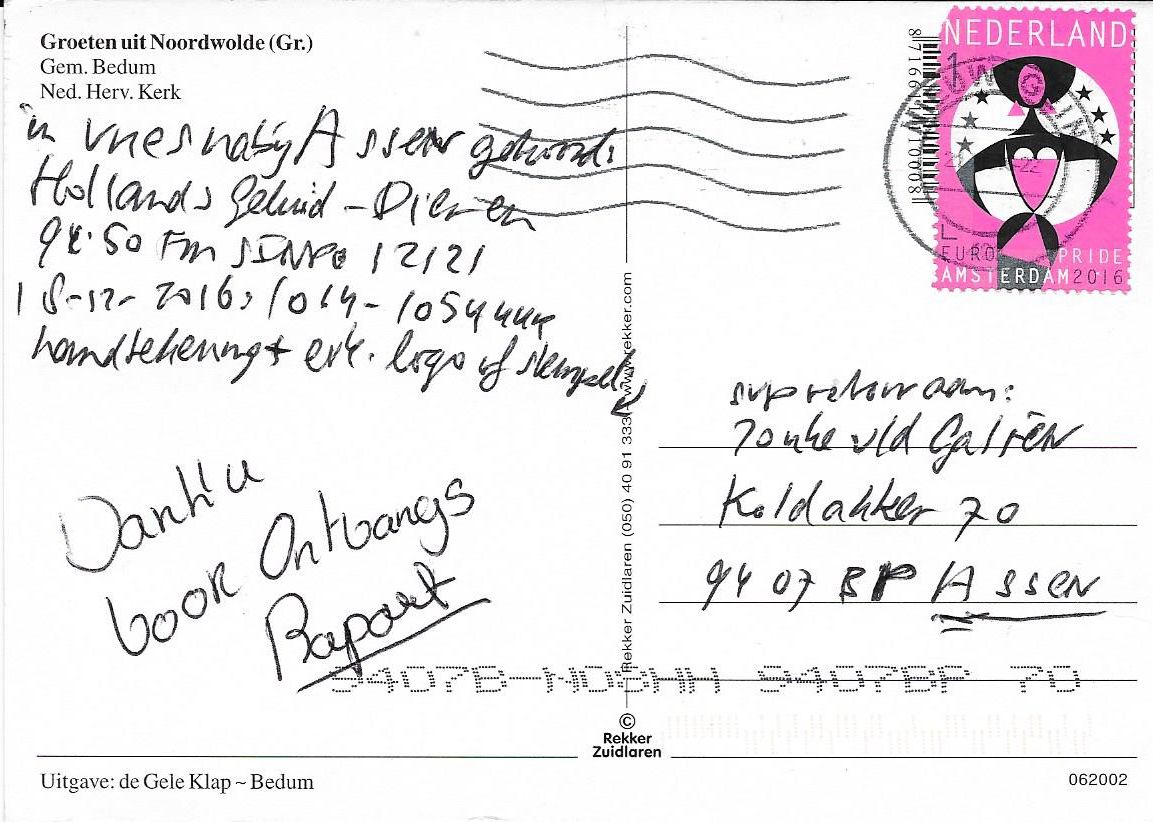 Groeten uit Noordwolde (Gr.)
Gem. Bedum
Ned. Herv. Kerk
in Vries nabij Assen gehoord:
Hollands Geluid - Dieren
94.50 Fm SINPO 12121
18-12-2016: 1014-1054 uur
handtekening + evt. logo of stempel
Dank u
voor Ontvangs
Rapport
svp retour aan:
Jouke vld Galiën
Koldakker 70
9407 BP Assen
NEDERLAND
1
EURO PRIDE
AMSTERDAM 2016
NIEUWEGEIN
Rekker Zuidlaren (050) 40 91 333 - www.rekker.com
9407B-NO8HH 9407BP 70
©
Rekker
Zuidlaren
Uitgave: de Gele Klap ~ Bedum
062002